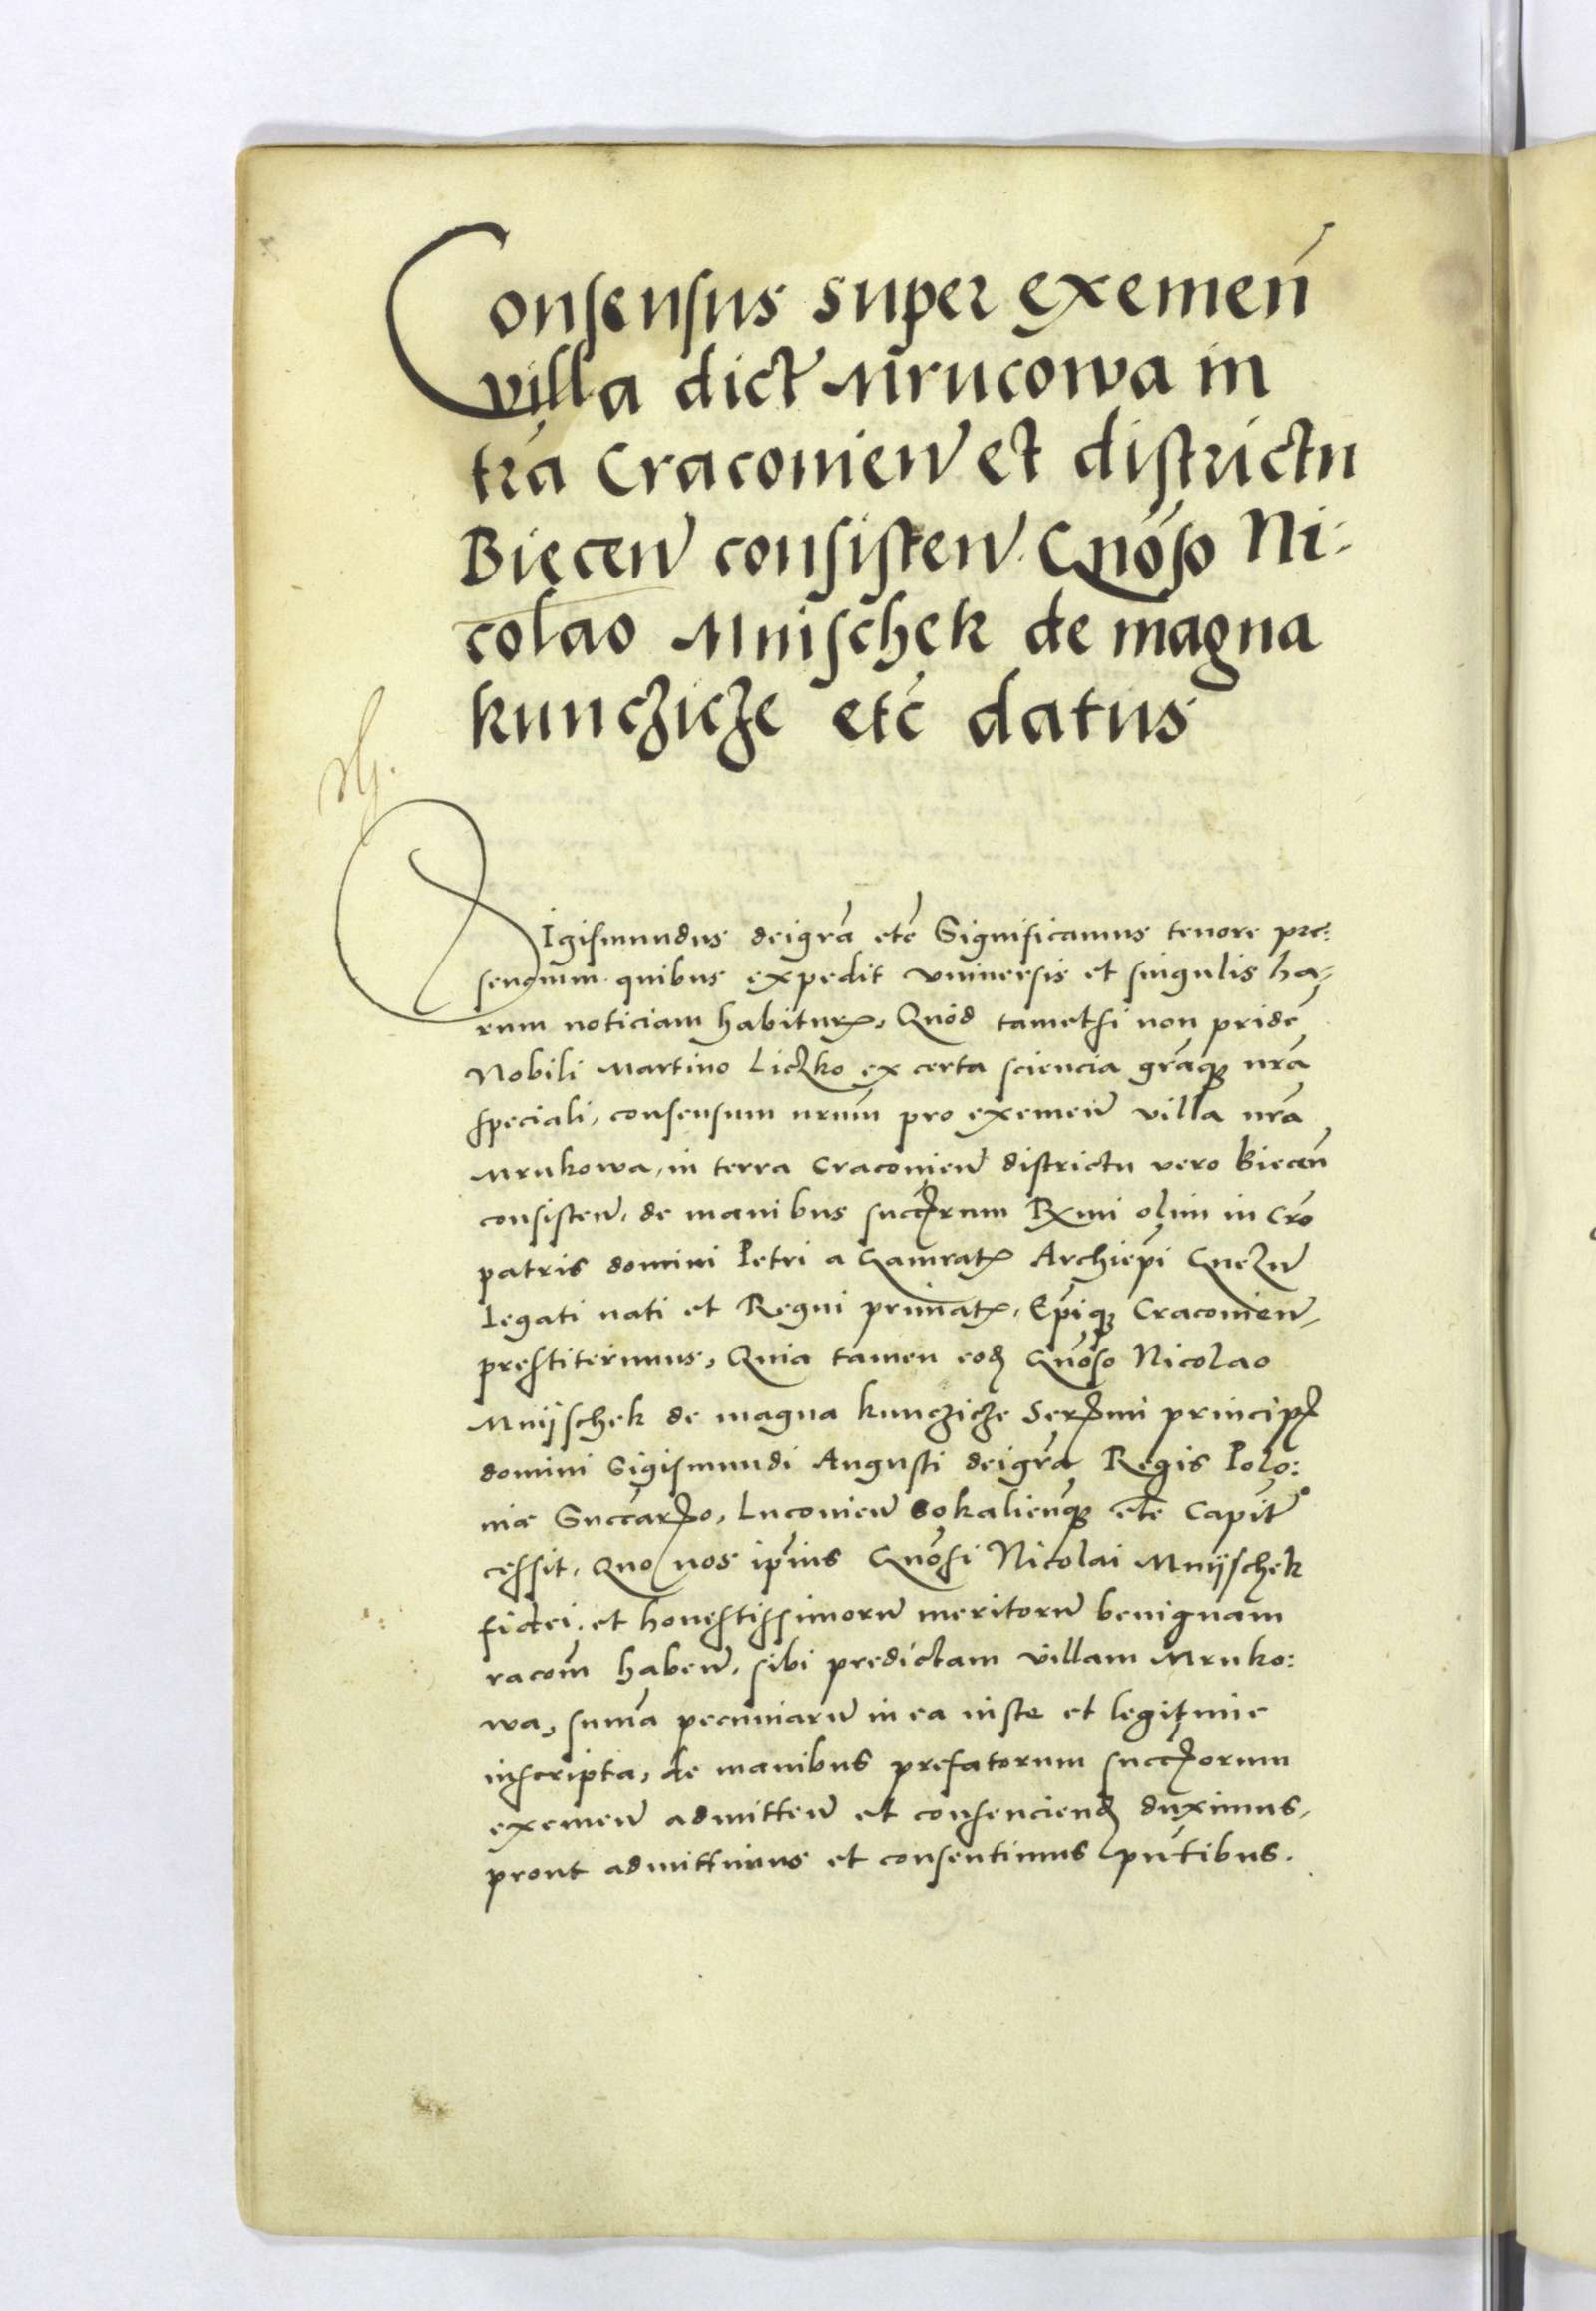 Consensus super exemen̄
villa dict̃ Mrucowa in
tr̃a Craconien̄ et districtu
Biecen̄ consisten̄ Gnõso Ni-
colao Mnischek de magna
kunczicze etc̃ datus
Sigismundus dei gr̃a etc̃ Significamus tenore pre:
sencium quibus expedit vniuersis et singulis ha-
rum noticiam habituꝝ, Quòd tametsi non pridẽ
Nobili Martino Liczko ex certa sciencia gr̃aqꝫ nr̃a
speciali, consensum nr̃um pro exemen̄ villa nr̃a
Mrukowa, in terra Craconien̄ districtu vero Biecen̄
consisten̄, de manibus succẽrum Rx̃mi olim in Crõ
patris domini Petri a Gamratꝭ Archiepĩ Gnezn̄
legati nati et Regni primatꝭ, Epĩqꝫ Craconien̄,
prestiterimus, Quia tamen eođ Gnõso Nicolao
Mnijschek de magna kunczicze Serꝫmi principꝭ
domini Sigismundi Augusti dei gr̃a Regis Polo:
niæ Succarꝫo, Luconien̄ Sokalien̄qꝫ etc̃ Capit̃o
cessit, Quo nos ip̃ius Gnõsi Nicolai Mnijschek
fidei, et honestissimorũ meritorũ benignam
racõm haben̄, sibi predictam villam Mruko:
wa, sum̃a pecuniarũ in ea iuste et legitime
inscripta, de manibus prefatorum succẽorum
exemen̄ admitten̄ et consenciend̃ duximus,
prout admittimus et consentimus pñtibus.